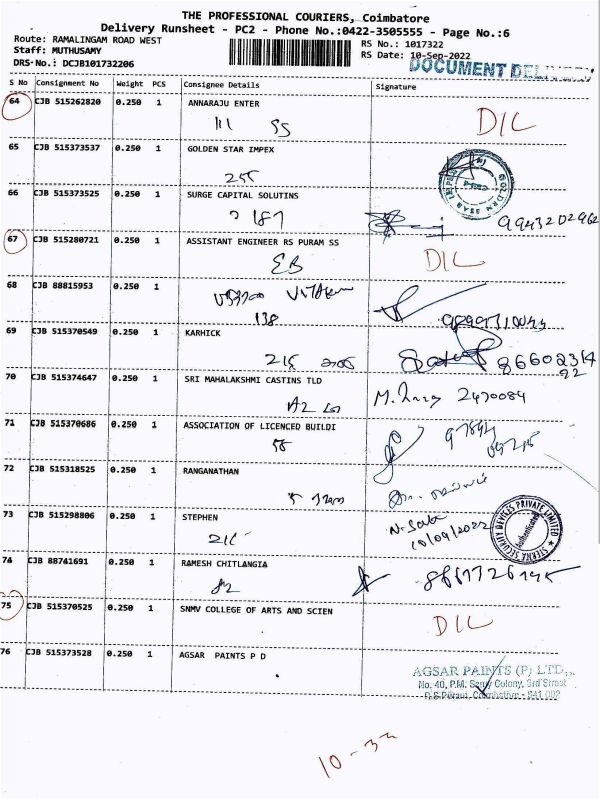 THE PROFESSIONAL COURIERS, Coimbatore
Delivery Runsheet - PC2 - Phone No.:0422-3505555 - Page No.:6
Route: RAMALINGAM ROAD WEST
RS No.: 1017322
Staff: MUTHUSAMY
RS Date: 10-Sep-2022
DRS-No.: DCJB101732206
DOCUMENT DELIVERY
S No Consignment No Weight PCS Consignee Details Signature
64 CJB 515262820 0.250 1 ANNARAJU ENTER
111 SS D/L
65 CJB 515373537 0.250 1 GOLDEN STAR IMPEX
255
66 CJB 515373525 0.250 1 SURGE CAPITAL SOLUTINS
187 9943202962
67 CJB 515280721 0.250 1 ASSISTANT ENGINEER RS PURAM SS
EB D/L
68 CJB 88815953 0.250 1
138
69 CJB 515370549 0.250 1 KARHICK
215 86602314
92
70 CJB 515374647 0.250 1 SRI MAHALAKSHMI CASTINS TLD
M. 2470084
71 CJB 515370686 0.250 1 ASSOCIATION OF LICENCED BUILDI
58
72 CJB 515318525 0.250 1 RANGANATHAN
73 CJB 515298806 0.250 1 STEPHEN
10/09/2022
STERNA SECURITY DEVICES PRIVATE LIMITED
74 CJB 88741691 0.250 1 RAMESH CHITLANGIA
82
75 CJB 515370525 0.250 1 SNMV COLLEGE OF ARTS AND SCIEN
D/L
76 CJB 515373528 0.250 1 AGSAR PAINTS P D
AGSAR PAINTS (P) LTD.,
No. 40, P.M. Samy Colony, 3rd Street
R.S.Puram, Coimbatore - 641 002